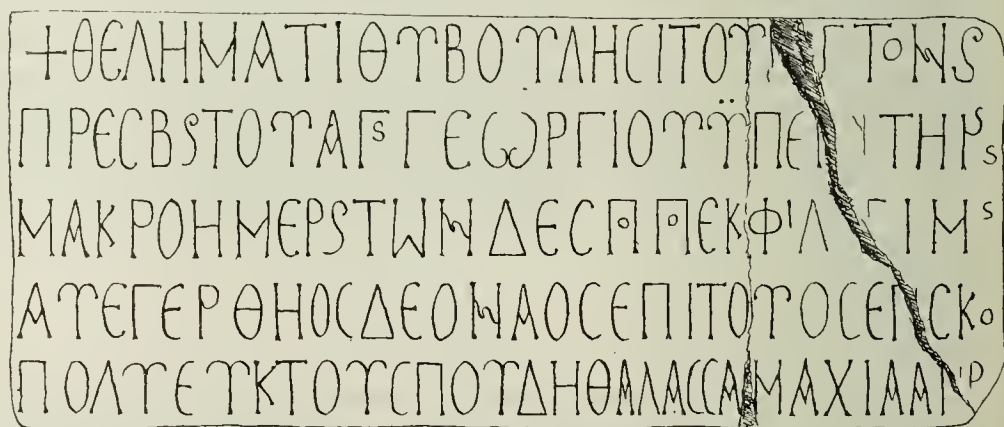 +ΘΕΛΗΜΑΤΙΘΥΒΟΥΛΗCΙΤΟΥ ΤΟΝS
ΠΡΕCΒSΤΟΥΑΓSΓΕΩΡΓΙΟΥΫΠΕΡ ΥΤΗΡSS
ΜΑΚΡΟΗΜΕΡSΤΩΝΔΕCΠΠΕΚΦΙΛ ΓΙΜS
ΑΥΕΓΕΡΘΗΟCΔΕΟΝΑΟCΕΠΙΤΟΥΟCΕΠCΚΟ
ΠΟΛΥΕΥΚΤΟΥCΠΟΥΔΗΘΑΛΑCCΑΜΑΧΙΑΑΝΙΡ